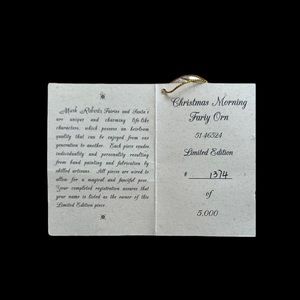 Mark Roberts Fairies and Santa's
are unique and charming life-like
characters, which possess an heirloom
quality that can be enjoyed from one
generation to another. Each piece exudes
individuality and personality resulting
from hand painting and fabrication by
skilled artisans. All pieces are wired to
allow for a magical and fanciful pose.
Your completed registration assures that
your name is listed as the owner of this
Limited Edition piece.
Christmas Morning
Farly Orn
51-46524
Limited Edition
# 1374
of
5,000